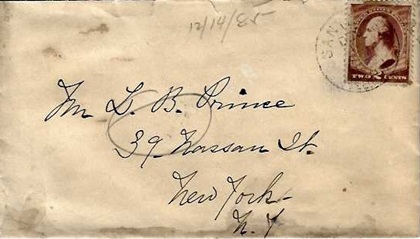 12/14/85
SAN
TWO 2 CENTS
Mr L. B. Prince
39 Nassau St.
New York
N. Y